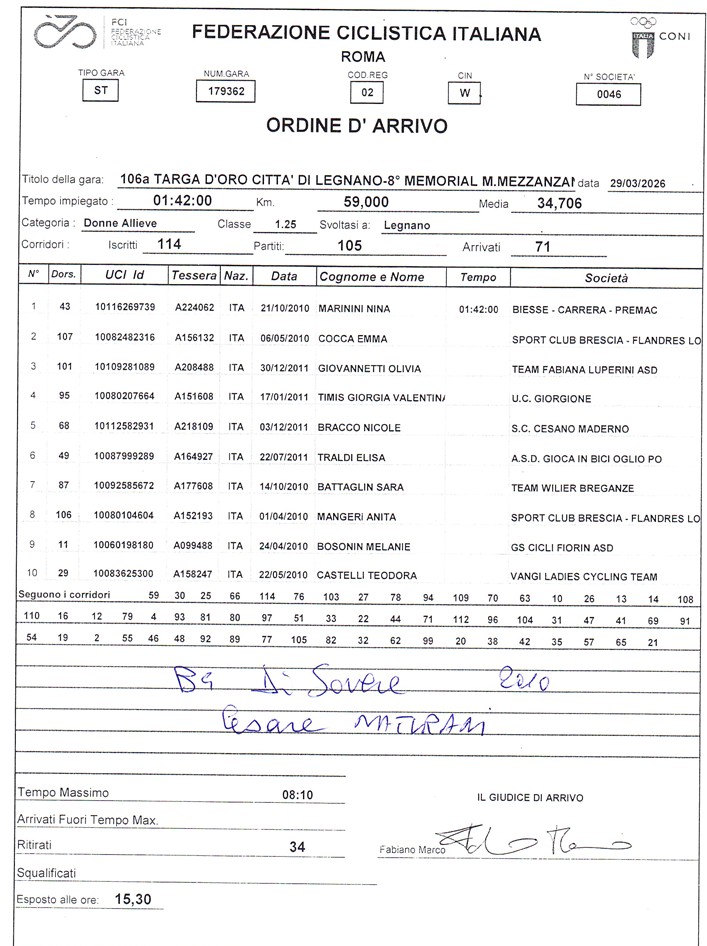 FCI
FEDERAZIONE
CICLISTICA
ITALIANA
FEDERAZIONE CICLISTICA ITALIANA
ROMA
ITALIA CONI
TIPO GARA NUM.GARA COD.REG CIN N° SOCIETA'
ST 179362 02 W 0046
ORDINE D' ARRIVO
Titolo della gara: 106a TARGA D'ORO CITTA' DI LEGNANO-8° MEMORIAL M.MEZZANZAN data 29/03/2026
Tempo impiegato : 01:42:00 Km. 59,000 Media 34,706
Categoria : Donne Allieve Classe 1.25 Svoltasi a: Legnano
Corridori : Iscritti 114 Partiti: 105 Arrivati 71
N° Dors. UCI Id Tessera Naz. Data Cognome e Nome Tempo Società
1 43 10116269739 A224062 ITA 21/10/2010 MARININI NINA 01:42:00 BIESSE - CARRERA - PREMAC
2 107 10082482316 A156132 ITA 06/05/2010 COCCA EMMA SPORT CLUB BRESCIA - FLANDRES LO
3 101 10109281089 A208488 ITA 30/12/2011 GIOVANNETTI OLIVIA TEAM FABIANA LUPERINI ASD
4 95 10080207664 A151608 ITA 17/01/2011 TIMIS GIORGIA VALENTINA U.C. GIORGIONE
5 68 10112582931 A218109 ITA 03/12/2011 BRACCO NICOLE S.C. CESANO MADERNO
6 49 10087999289 A164927 ITA 22/07/2011 TRALDI ELISA A.S.D. GIOCA IN BICI OGLIO PO
7 87 10092585672 A177608 ITA 14/10/2010 BATTAGLIN SARA TEAM WILIER BREGANZE
8 106 10080104604 A152193 ITA 01/04/2010 MANGERI ANITA SPORT CLUB BRESCIA - FLANDRES LO
9 11 10060198180 A099488 ITA 24/04/2010 BOSONIN MELANIE GS CICLI FIORIN ASD
10 29 10083625300 A158247 ITA 22/05/2010 CASTELLI TEODORA VANGI LADIES CYCLING TEAM
Seguono i corridori 59 30 25 66 114 76 103 27 78 94 109 70 63 10 26 13 14 108
110 16 12 79 4 93 81 80 97 51 33 22 44 71 112 96 104 31 47 41 69 91
54 19 2 55 46 48 92 89 77 105 82 32 62 99 20 38 42 35 57 65 21
Di Sovere 2010
Cesare
Tempo Massimo 08:10
IL GIUDICE DI ARRIVO
Arrivati Fuori Tempo Max.
Ritirati 34
Fabiano Marco
Squalificati
Esposto alle ore: 15,30